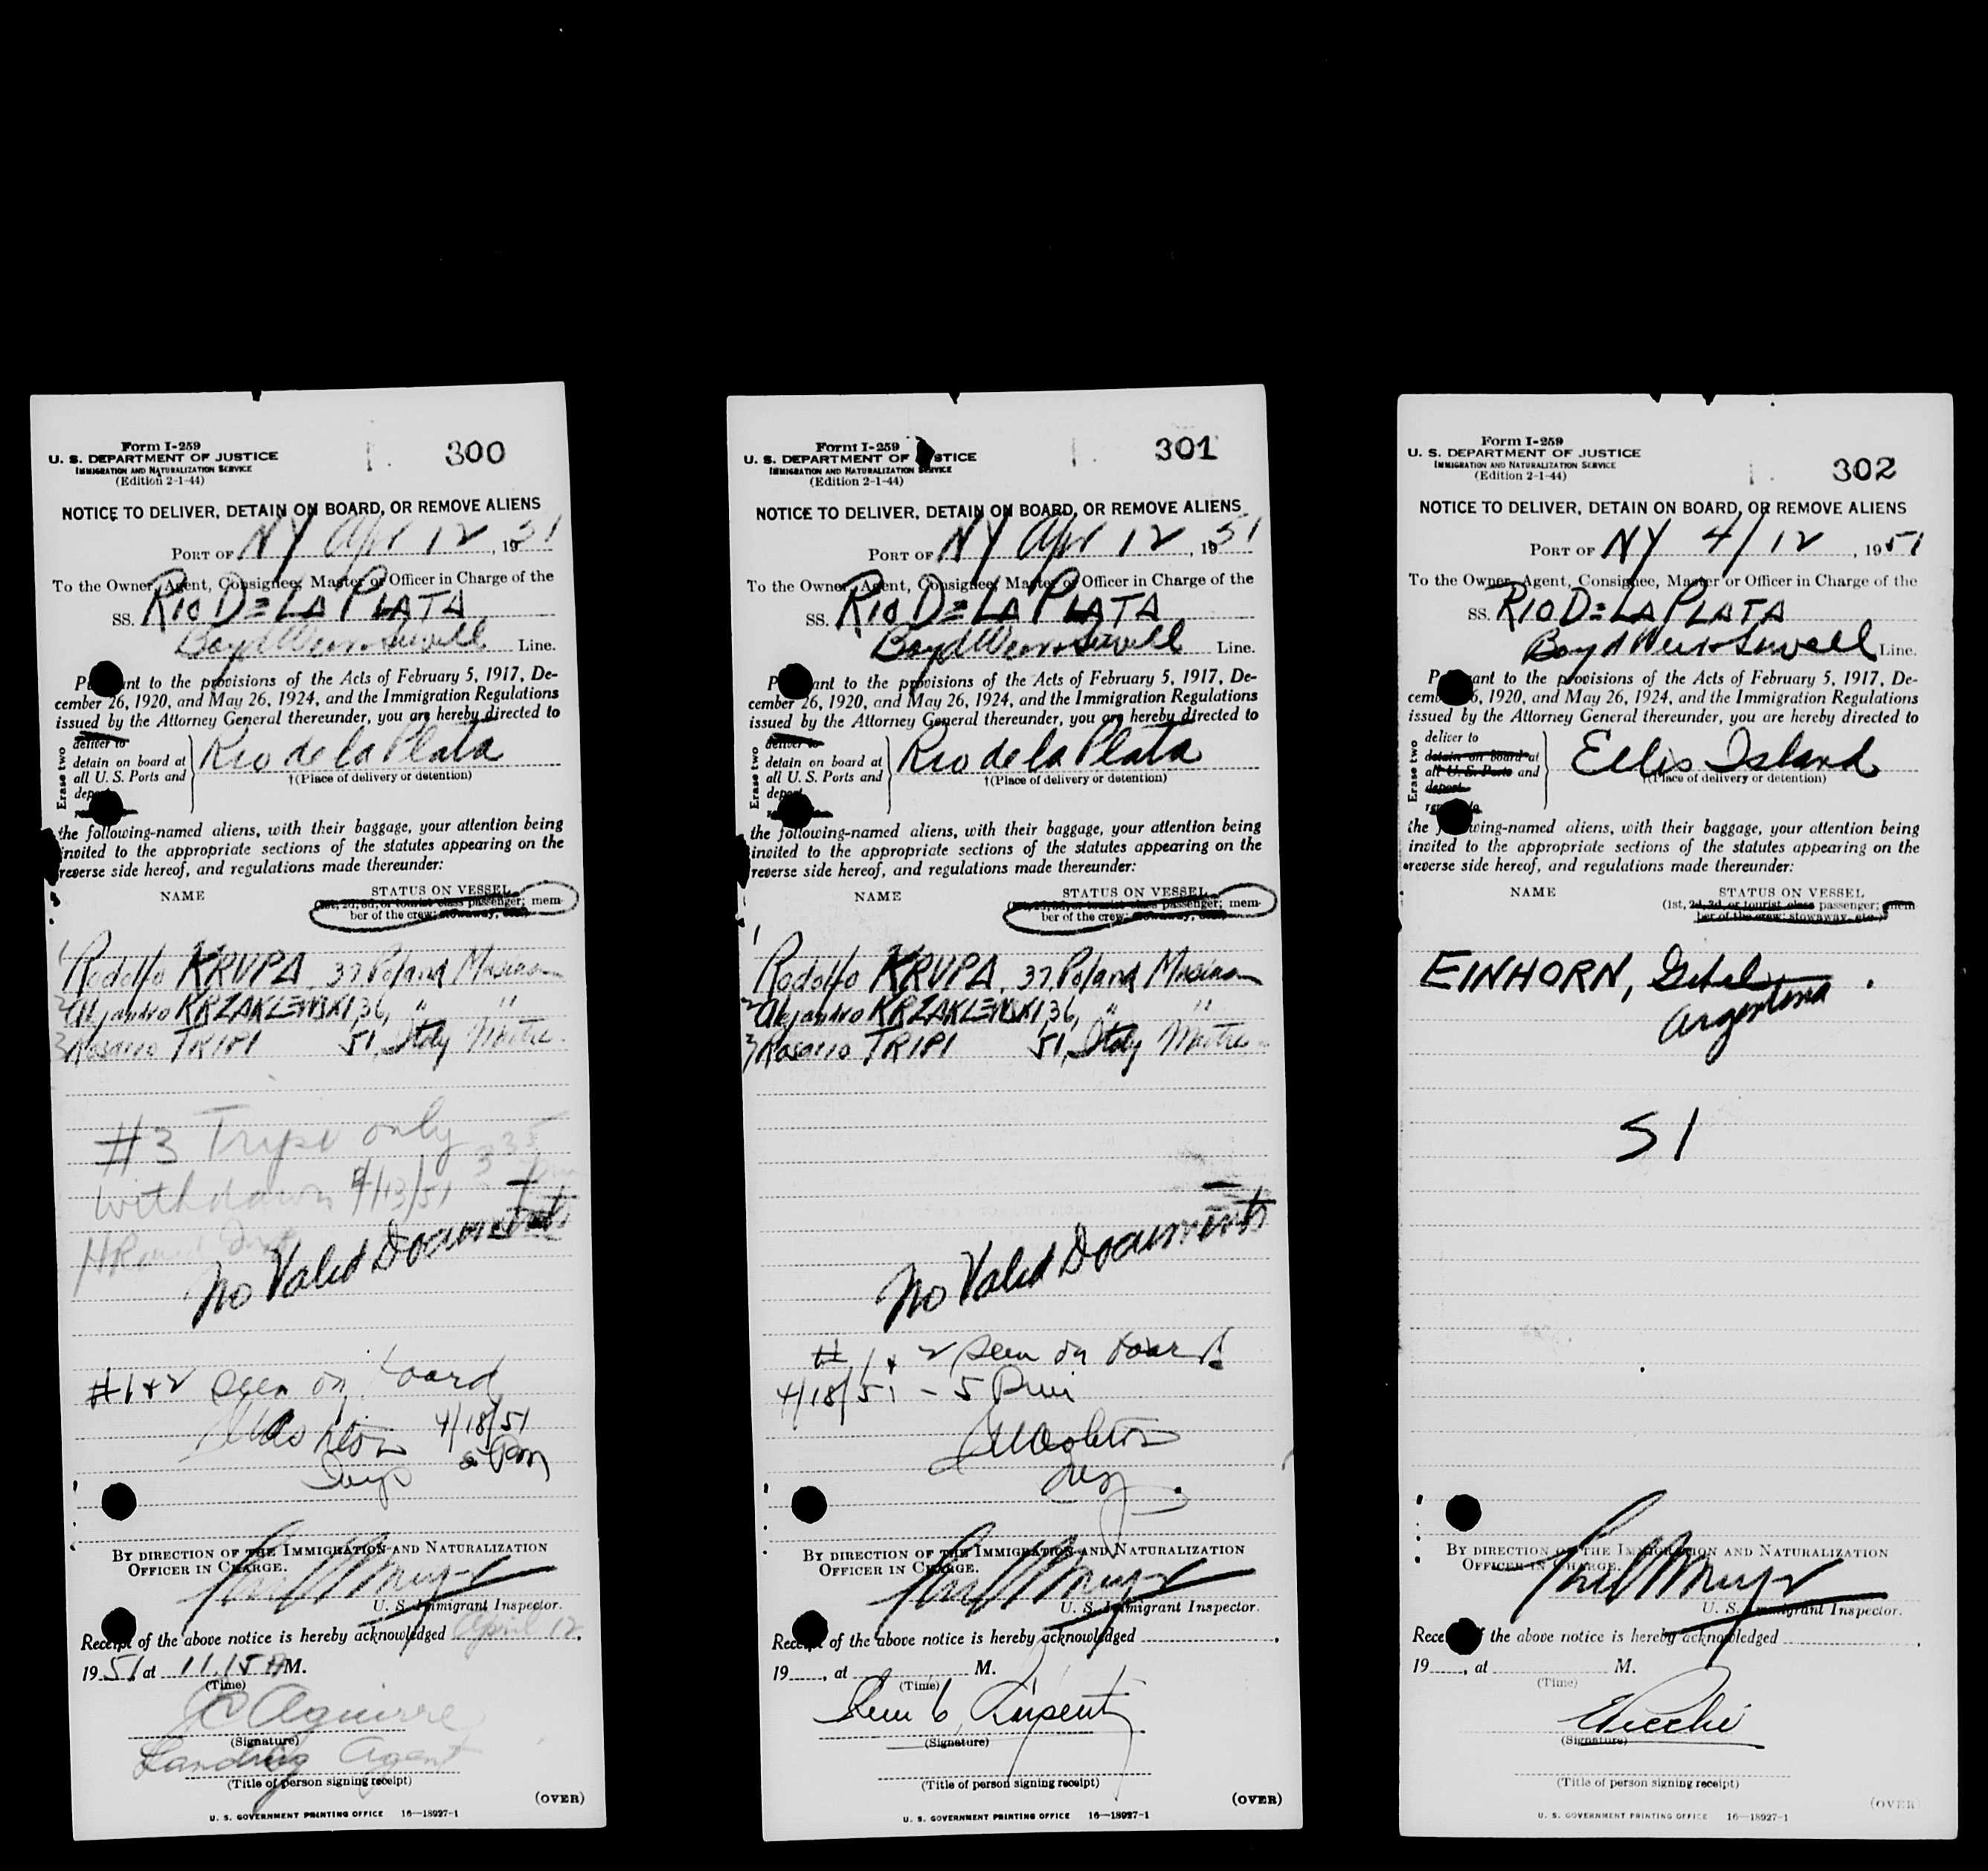 Form I-259
U. S. DEPARTMENT OF JUSTICE
IMMIGRATION AND NATURALIZATION SERVICE
(Edition 2-1-44)
300
NOTICE TO DELIVER, DETAIN ON BOARD, OR REMOVE ALIENS
PORT OF NY Apr 12, 1951
To the Owner, Agent, Consignee, Master or Officer in Charge of the
SS. RIO DE LA PLATA
Boyd Weir & Sewell Line.
Pursuant to the provisions of the Acts of February 5, 1917, De-
cember 26, 1920, and May 26, 1924, and the Immigration Regulations
issued by the Attorney General thereunder, you are hereby directed to
Erase two
deliver to
detain on board at
all U. S. Ports and
deport
Rio de la Plata
†(Place of delivery or detention)
the following-named aliens, with their baggage, your attention being
invited to the appropriate sections of the statutes appearing on the
reverse side hereof, and regulations made thereunder:
NAME STATUS ON VESSEL
(1st, 2d, 3d, or tourist class passenger; mem-
ber of the crew; stowaway, etc.)
1 Rodolfo KRUPA, 37 Poland Musician
2 Alejandro KRZAKLEWSKI 36, " "
3 Rosario TRIPI 51, Italy Maitre
#3 Tripi only
withdrawn 4/13/51 3 35
No Valid Documents
#1 & 2 seen on board
4/18/51
5 Pm
Insp
BY DIRECTION OF THE IMMIGRATION AND NATURALIZATION
OFFICER IN CHARGE.
U. S. Immigrant Inspector.
Receipt of the above notice is hereby acknowledged April 12,
1951 at 11.15 A M.
(Time)
JC Aguirre
(Signature)
Landing Agent
(Title of person signing receipt)
(OVER)
U. S. GOVERNMENT PRINTING OFFICE 16—18927-1
Form I-259
U. S. DEPARTMENT OF JUSTICE
IMMIGRATION AND NATURALIZATION SERVICE
(Edition 2-1-44)
301
NOTICE TO DELIVER, DETAIN ON BOARD, OR REMOVE ALIENS
PORT OF NY Apr 12, 1951
To the Owner, Agent, Consignee, Master or Officer in Charge of the
SS. RIO DE LA PLATA
Boyd Weir & Sewell Line.
Pursuant to the provisions of the Acts of February 5, 1917, De-
cember 26, 1920, and May 26, 1924, and the Immigration Regulations
issued by the Attorney General thereunder, you are hereby directed to
Erase two
deliver to
detain on board at
all U. S. Ports and
deport
Rio de la Plata
†(Place of delivery or detention)
the following-named aliens, with their baggage, your attention being
invited to the appropriate sections of the statutes appearing on the
reverse side hereof, and regulations made thereunder:
NAME STATUS ON VESSEL
(1st, 2d, 3d, or tourist class passenger; mem-
ber of the crew; stowaway, etc.)
1 Rodolfo KRUPA, 37 Poland Musician
2 Alejandro KRZAKLEWSKI 36, " "
3 Rosario TRIPI 51, Italy Maitre
No Valid Documents
# 1 & 2 seen on board
4/18/51 - 5 Pm
Insp
BY DIRECTION OF THE IMMIGRATION AND NATURALIZATION
OFFICER IN CHARGE.
U. S. Immigrant Inspector.
Receipt of the above notice is hereby acknowledged
19 , at M.
(Time)
(Signature)
(Title of person signing receipt)
(OVER)
U. S. GOVERNMENT PRINTING OFFICE 16—18927-1
Form I-259
U. S. DEPARTMENT OF JUSTICE
IMMIGRATION AND NATURALIZATION SERVICE
(Edition 2-1-44)
302
NOTICE TO DELIVER, DETAIN ON BOARD, OR REMOVE ALIENS
PORT OF NY 4/12, 1951
To the Owner, Agent, Consignee, Master or Officer in Charge of the
SS. RIO DE LA PLATA
Boyd Weir & Sewell Line.
Pursuant to the provisions of the Acts of February 5, 1917, De-
cember 26, 1920, and May 26, 1924, and the Immigration Regulations
issued by the Attorney General thereunder, you are hereby directed to
Erase two
deliver to
detain on board at
all U. S. Ports and
deport
Ellis Island
†(Place of delivery or detention)
the following-named aliens, with their baggage, your attention being
invited to the appropriate sections of the statutes appearing on the
reverse side hereof, and regulations made thereunder:
NAME STATUS ON VESSEL
(1st, 2d, 3d, or tourist class passenger; mem-
ber of the crew; stowaway, etc.)
EINHORN,
Argentina
51
BY DIRECTION OF THE IMMIGRATION AND NATURALIZATION
OFFICER IN CHARGE.
U. S. Immigrant Inspector.
Receipt of the above notice is hereby acknowledged
19 , at M.
(Time)
(Signature)
(Title of person signing receipt)
(OVER)
U. S. GOVERNMENT PRINTING OFFICE 16—18927-1